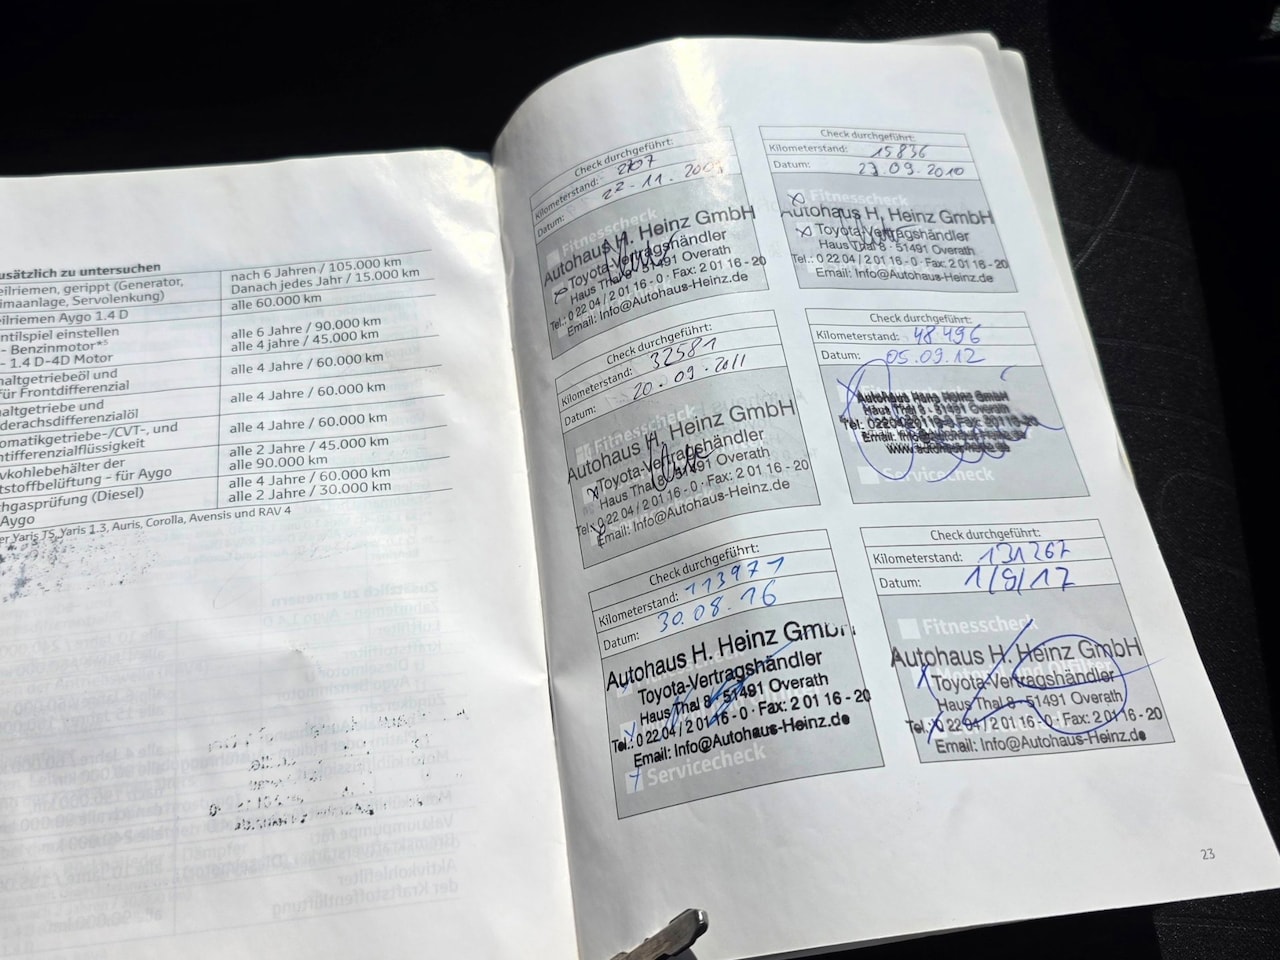 usätzlich zu untersuchen
eilriemen, gerippt (Generator,
imaanlage, Servolenkung)
nach 6 Jahren / 105.000 km
Danach jedes Jahr / 15.000 km
eilriemen Aygo 1.4 D
alle 60.000 km
ntilspiel einstellen
- Benzinmotor*⁵
- 1.4 D-4D Motor
alle 6 Jahre / 90.000 km
alle 4 Jahre / 45.000 km
haltgetriebeöl und
für Frontdifferenzial
alle 4 Jahre / 60.000 km
haltgetriebe und
nderachsdifferenzialöl
alle 4 Jahre / 60.000 km
omatikgetriebe-/CVT-, und
ntdifferenzialflüssigkeit
alle 4 Jahre / 60.000 km
ivkohlebehälter der
tstoffbelüftung - für Aygo
alle 2 Jahre / 45.000 km
alle 90.000 km
chgasprüfung (Diesel)
Aygo
alle 4 Jahre / 60.000 km
alle 2 Jahre / 30.000 km
er Yaris TS, Yaris 1.3, Auris, Corolla, Avensis und RAV 4
Check durchgeführt:
Kilometerstand: 2707
Datum: 22-11.
Fitnesscheck
Autohaus H. Heinz GmbH
Toyota-Vertragshändler
Haus Thal 8 · 51491 Overath
Tel.: 0 22 04 / 2 01 16 - 0 · Fax: 2 01 16 - 20
Email: Info@Autohaus-Heinz.de
Check durchgeführt:
Kilometerstand: 15836
Datum: 23.09.2010
Fitnesscheck
Autohaus H. Heinz GmbH
Toyota-Vertragshändler
Haus Thal 8 · 51491 Overath
Tel.: 0 22 04 / 2 01 16 - 0 · Fax: 2 01 16 - 20
Email: Info@Autohaus-Heinz.de
Check durchgeführt:
Kilometerstand: 32581
Datum: 20.09.2011
Fitnesscheck
Autohaus H. Heinz GmbH
Toyota-Vertragshändler
Haus Thal 8 · 51491 Overath
Tel.: 0 22 04 / 2 01 16 - 0 · Fax: 2 01 16 - 20
Email: Info@Autohaus-Heinz.de
Check durchgeführt:
Kilometerstand: 48496
Datum: 05.09.12
Autohaus Heinz GmbH
Haus Thal 8 · 51491 Overath
Servicecheck
Check durchgeführt:
Kilometerstand: 113971
Datum: 30.08.16
Autohaus H. Heinz GmbH
Toyota-Vertragshändler
Haus Thal 8 · 51491 Overath
Tel.: 0 22 04 / 2 01 16 - 0 · Fax: 2 01 16 - 20
Email: Info@Autohaus-Heinz.de
Servicecheck
Check durchgeführt:
Kilometerstand: 131267
Datum: 1/9/17
Fitnesscheck
Autohaus H. Heinz GmbH
Toyota-Vertragshändler
Haus Thal 8 · 51491 Overath
Tel.: 0 22 04 / 2 01 16 - 0 · Fax: 2 01 16 - 20
Email: Info@Autohaus-Heinz.de
23